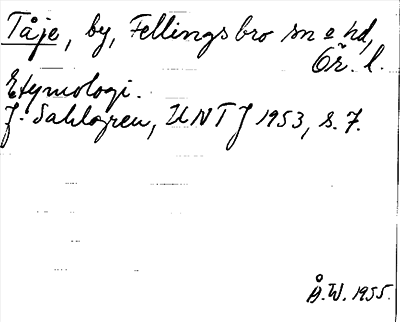 Tåje, by, Fellingsbro sn o hd,
Ör. l.
Etymologi.
J. Sahlgren, UNTJ 1953, s. 7.
Å.W. 1955.